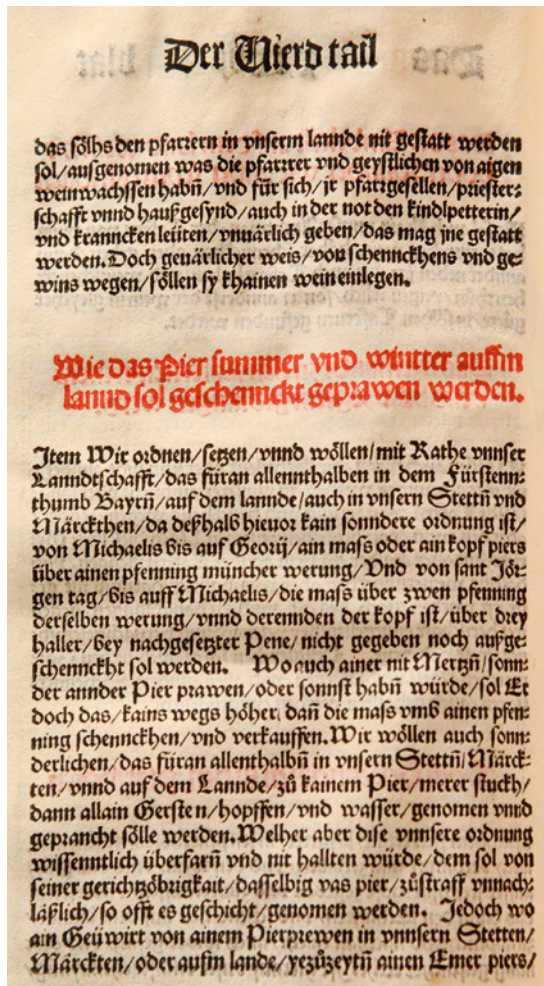 Der Vierd tail
das sölhs den pfarrern in vnserm lannde nit gestatt werden
sol/ausgenomen was die pfarrer vnd geystlichen von aigen
weinwachssen habñ/vnd für sich/jr pfarrgesellen/priester⸗
schafft vnnd haußgesynd/auch in der not den kindlpetterin/
vnd kranncken leüten/vnuärlich geben/das mag jne gestatt
werden. Doch geuärlicher weis/von schennckhens vnd ge⸗
wins wegen/söllen sy khainen wein einlegen.
Wie das Pier summer vnd winter auffm
lannd sol geschennckt geprawen werden.
Item Wir ordnen/setzen/vnnd wöllen/mit Rathe vnnser
Lanndtschafft/das füran allennthalben in dem Fürstenn⸗
thumb Bayrñ/auf dem lannde/auch in vnsern Stettñ vnd
Märckthen/da deßhalb hieuor kain sonndere ordnung ist/
von Michaelis bis auf Georij/ain mass oder ain kopf piers
über ainen pfenning müncher werung/Vnd von sant Jör⸗
gen tag/bis auff Michaelis/die mass über zwen pfenning
derselben werung/vnnd derennden der kopf ist/über drey
haller/bey nachgesetzter Pene/nicht gegeben noch außge⸗
schennckht sol werden. Wo auch ainer nit Mertzñ/sonn⸗
der annder Pier prawen/oder sonnst habñ würde/sol Er
doch das/kains wegs höher dañ die mass vmb ainen pfen⸗
ning schennckhen/vnd verkauffen. Wir wöllen auch sonn⸗
derlichen/das füran allenthalbñ in vnsern Stettñ/Märck⸗
ten/vnnd auf dem Lannde/zů kainem Pier/merer stuckh/
dann allain Gersten/hopffen/vnd wasser/genomen vnnd
geprancht sölle werden. Welher aber dise vnnsere ordnung
wissenntlich überfarñ vnd nit hallten würde/dem sol von
seiner gerichtzöbrigkait/dasselbig vas pier/zůstraff vnnach⸗
läßlich/so offt es geschicht/genomen werden. Jedoch wo
ain Geüwirt von ainem Pierprewen in vnnsern Stetten/
Märckten/oder aufm lande/yezůzeytñ ainen Emer piers/